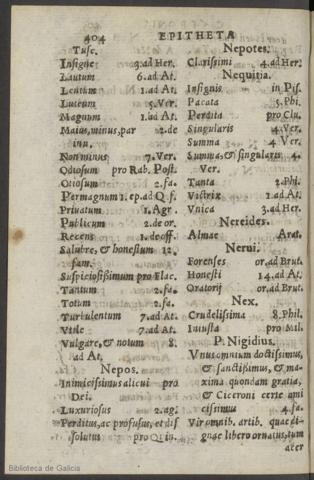 404 EPITHETA
Tusc.
Insigne 3.ad Her.
Lautum 6.ad At.
Lentum 1.ad At.
Luteum 5.Ver.
Magnum 1.ad At.
Maius, minus, par 2.de
inu.
Non minus 7.Ver.
Odiosum pro Rab. Post.
Otiosum 2.fa.
Permagnum 1.ep.ad Q.f.
Priuatum 1.Agr.
Publicum 2.de or.
Recens 1.de off.
Salubre, & honestum 12.
fam.
Suspiciosissimum pro Flac.
Tantum 2.fa.
Totum 2.fa.
Turbulentum 7.ad At.
Vtile 7.ad At.
Vulgare, & notum 8.
ad At.
Nepos.
Inimicissimus alicui pro
Dei.
Luxuriosus 2.ag.
Perditus, ac profusus, et dis
solutus pro Quin.
Nepotes.
Clarissimi 4.ad Her.
Nequitia.
Insignis in Pis.
Pacata 5.Phi.
Perdita pro Clu.
Singularis 4.Ver.
Summa 4 Ver.
Summa, & singularis 4.
Ver.
Tanta 2.Phi.
Victrix 1.ad At.
Vnica 3.ad Her.
Nereides.
Almae Arat.
Nerui.
Forenses or.ad Brut.
Honesti 14.ad At.
Oratorij or.ad Brut.
Nex.
Crudelissima 8.Phil.
Iniusta pro Mil.
P. Nigidius.
Vnus omnium doctissimus,
& sanctissimus, & ma-
xima quondam gratia,
& Ciceroni certe ami
cissimus 4.fa.
Vir omnib. artib. quae di-
gnae libero ornatus, tum
acer
Biblioteca de Galicia